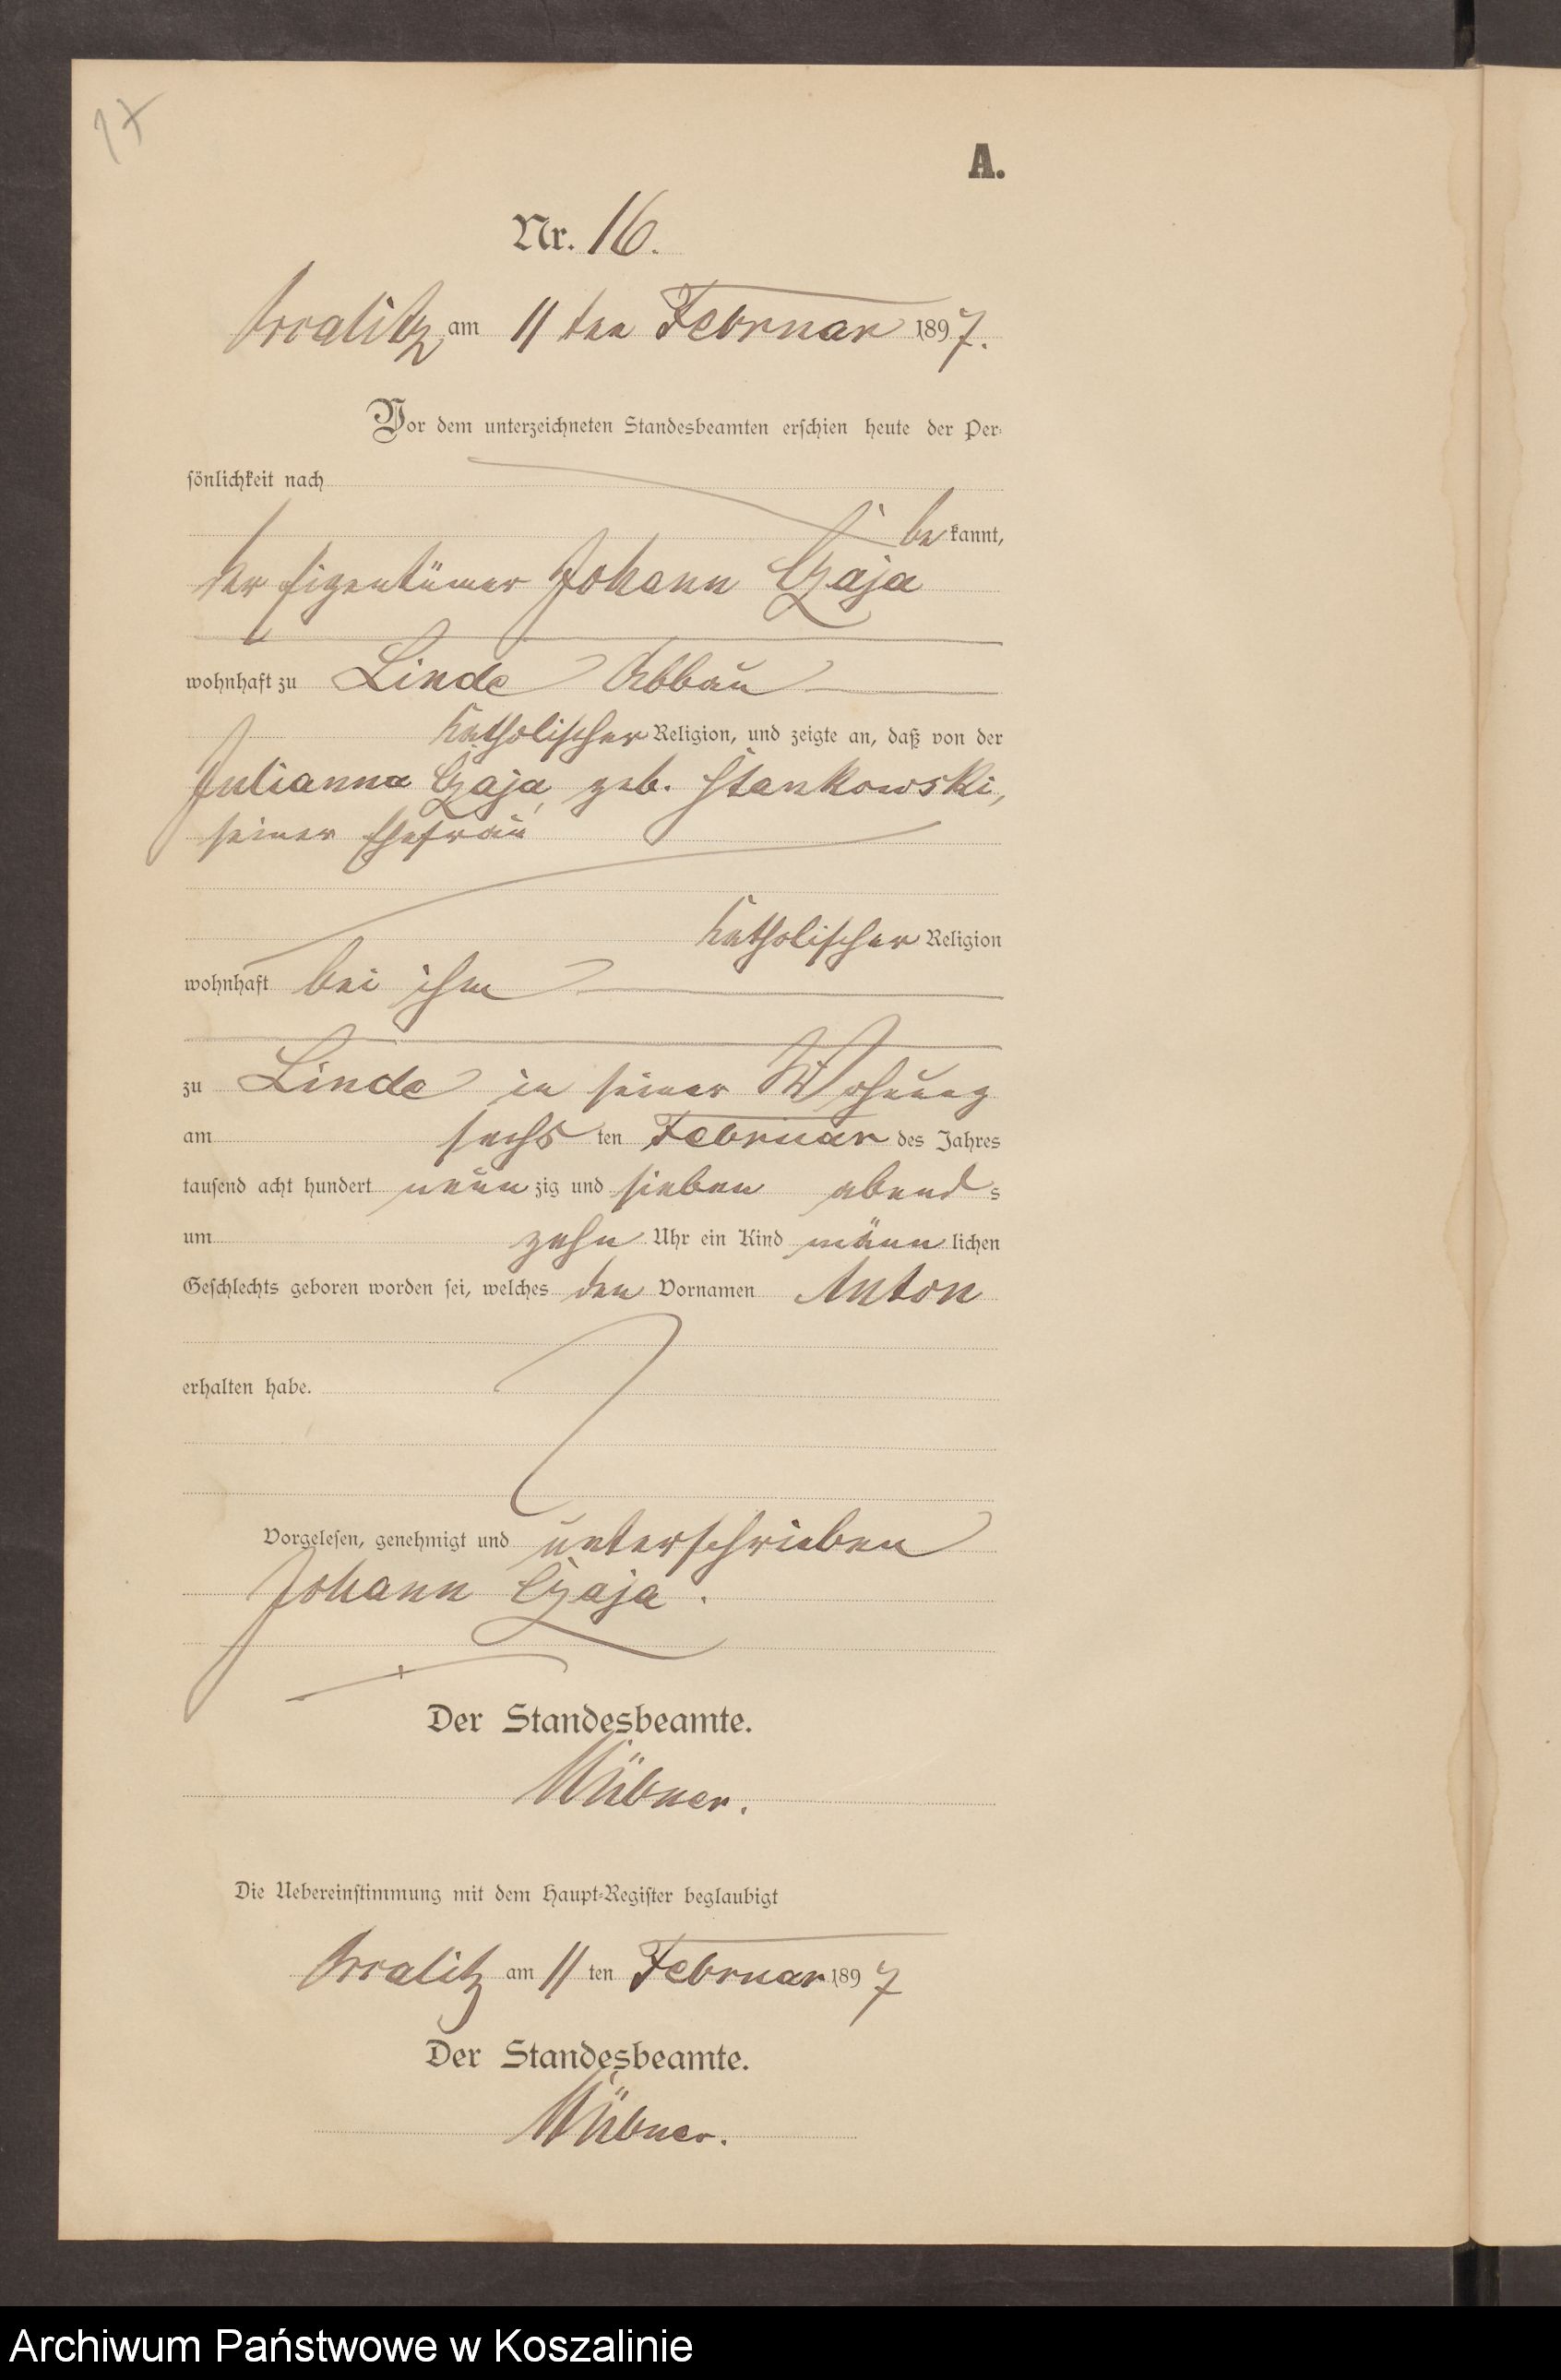 17
A.
Nr. 16.
am 11 ten Februar 1897.
Vor dem unterzeichneten Standesbeamten erschien heute der Per-
sönlichkeit nach
be kannt,
der Eigentümer Johann Czaja
wohnhaft zu Linde Abbau
katholischer Religion, und zeigte an, daß von der
Julianna Czaja, geb. Stankowski,
seiner Ehefrau
katholischer Religion
wohnhaft bei ihm
zu Linde in seiner Wohnung
am sechs ten Februar des Jahres
tausend acht hundert neun zig und sieben abend s
um zehn Uhr ein Kind männ lichen
Geschlechts geboren worden sei, welches den Vornamen Anton
erhalten habe.
Vorgelesen, genehmigt und unterschrieben
Johann Czaja.
Der Standesbeamte.
Die Uebereinstimmung mit dem Haupt-Register beglaubigt
am 11 ten Februar 1897
Der Standesbeamte.
Archiwum Państwowe w Koszalinie